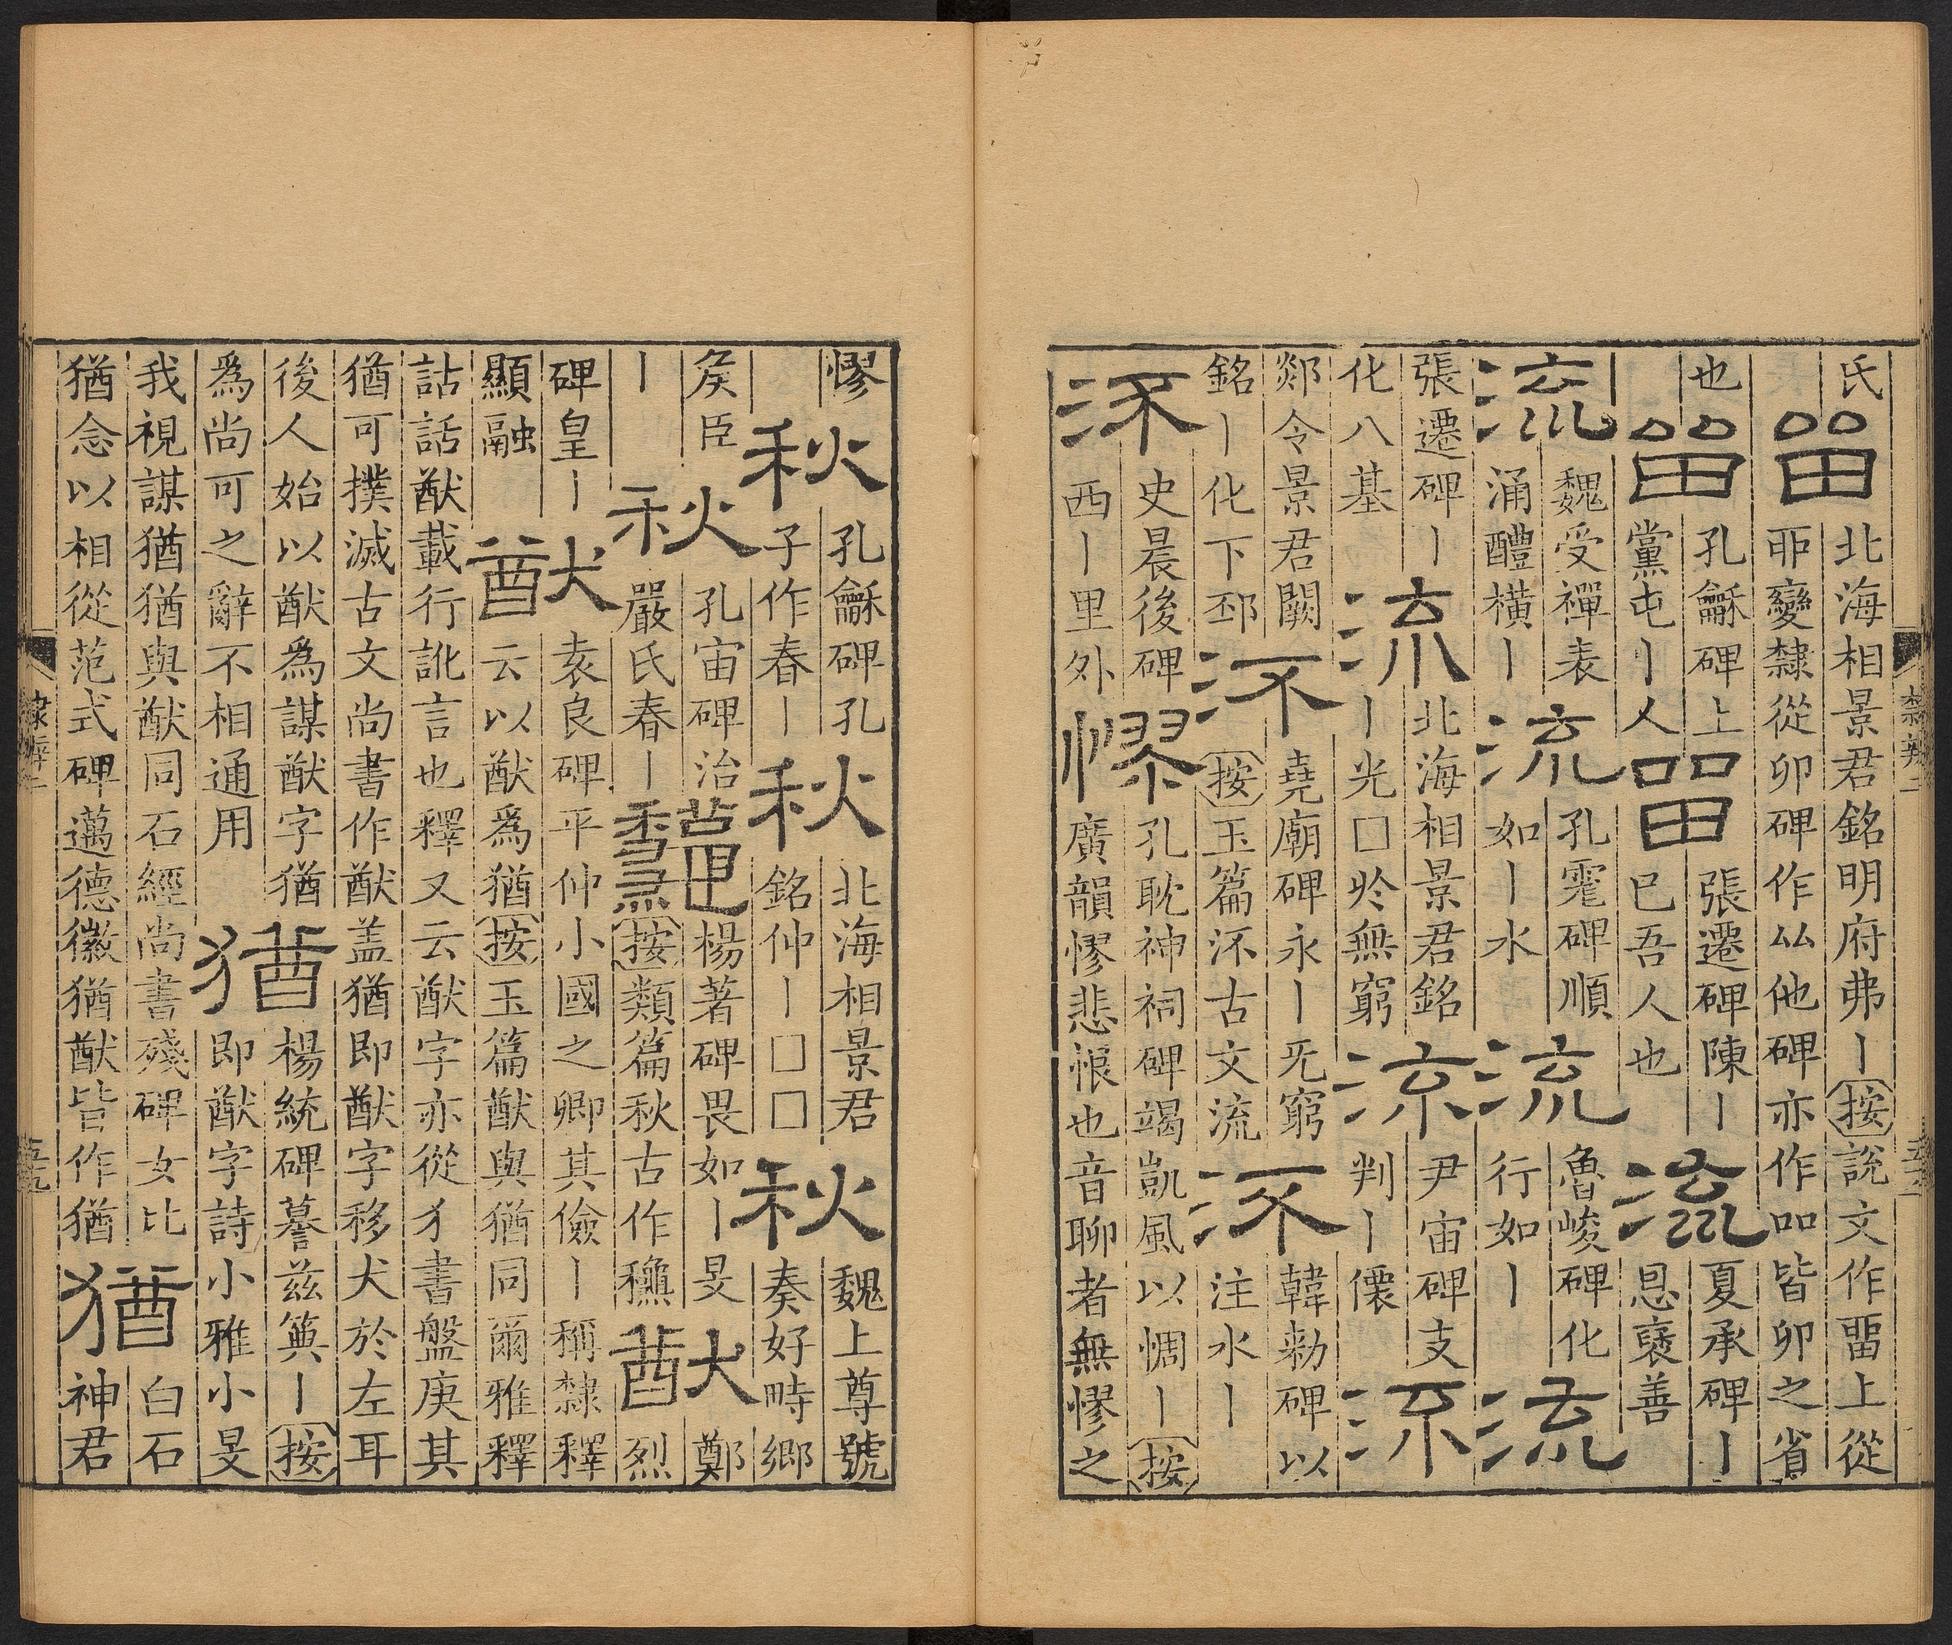 氏
畱
北海相景君銘明府弗丨按說文作畱上從
丣變隸從卯碑作厸他碑亦作吅皆卯之省
也
畱
孔龢碑上
黨屯丨人
畱
張遷碑陳丨
巳吾人也
流
夏承碑丨
恩襃善
流
魏受禪表
涌醴橫丨
流
孔霔碑順
如丨水
流
魯峻碑化
行如丨
流
張遷碑丨
化八基
流
北海相景君銘
丨光□於無窮
流
尹宙碑支
判丨僊
流
郯令景君闕
銘丨化下邳
㳅
堯廟碑永丨旡窮
按玉篇㳅古文流
㳅
韓勑碑以
注水丨
㳅
史晨後碑
西丨里外
憀
孔耽神祠碑竭凱風以惆丨按
廣韻憀悲恨也音聊者無憀之
隸辨二
憀
秋
孔龢碑孔
子作春丨
秋
北海相景君
銘仲丨□□
秋
魏上尊號
奏好畤鄉
矦臣
丨
秋
孔宙碑治
嚴氏春丨
龝
楊著碑畏如丨旻
按類篇秋古作龝
猷
鄭
烈
碑皇丨
顯融
猷
袁良碑平仲小國之卿其儉丨稱隸釋
云以猷爲猶按玉篇猷與猶同爾雅釋
詁話猷載行訛言也釋又云猷字亦從犭書盤庚其
猶可撲滅古文尚書作猷盖猶即猷字移犬於左耳
後人始以猷爲謀猷字猶
爲尚可之辭不相通用
猶
楊統碑謩茲䉛丨按
即猷字詩小雅小旻
我視謀猶猶與猷同石經尚書殘碑女比
猶念以相從范式碑邁德徽猶猷皆作猶
猶
白石
神君
隸辨二